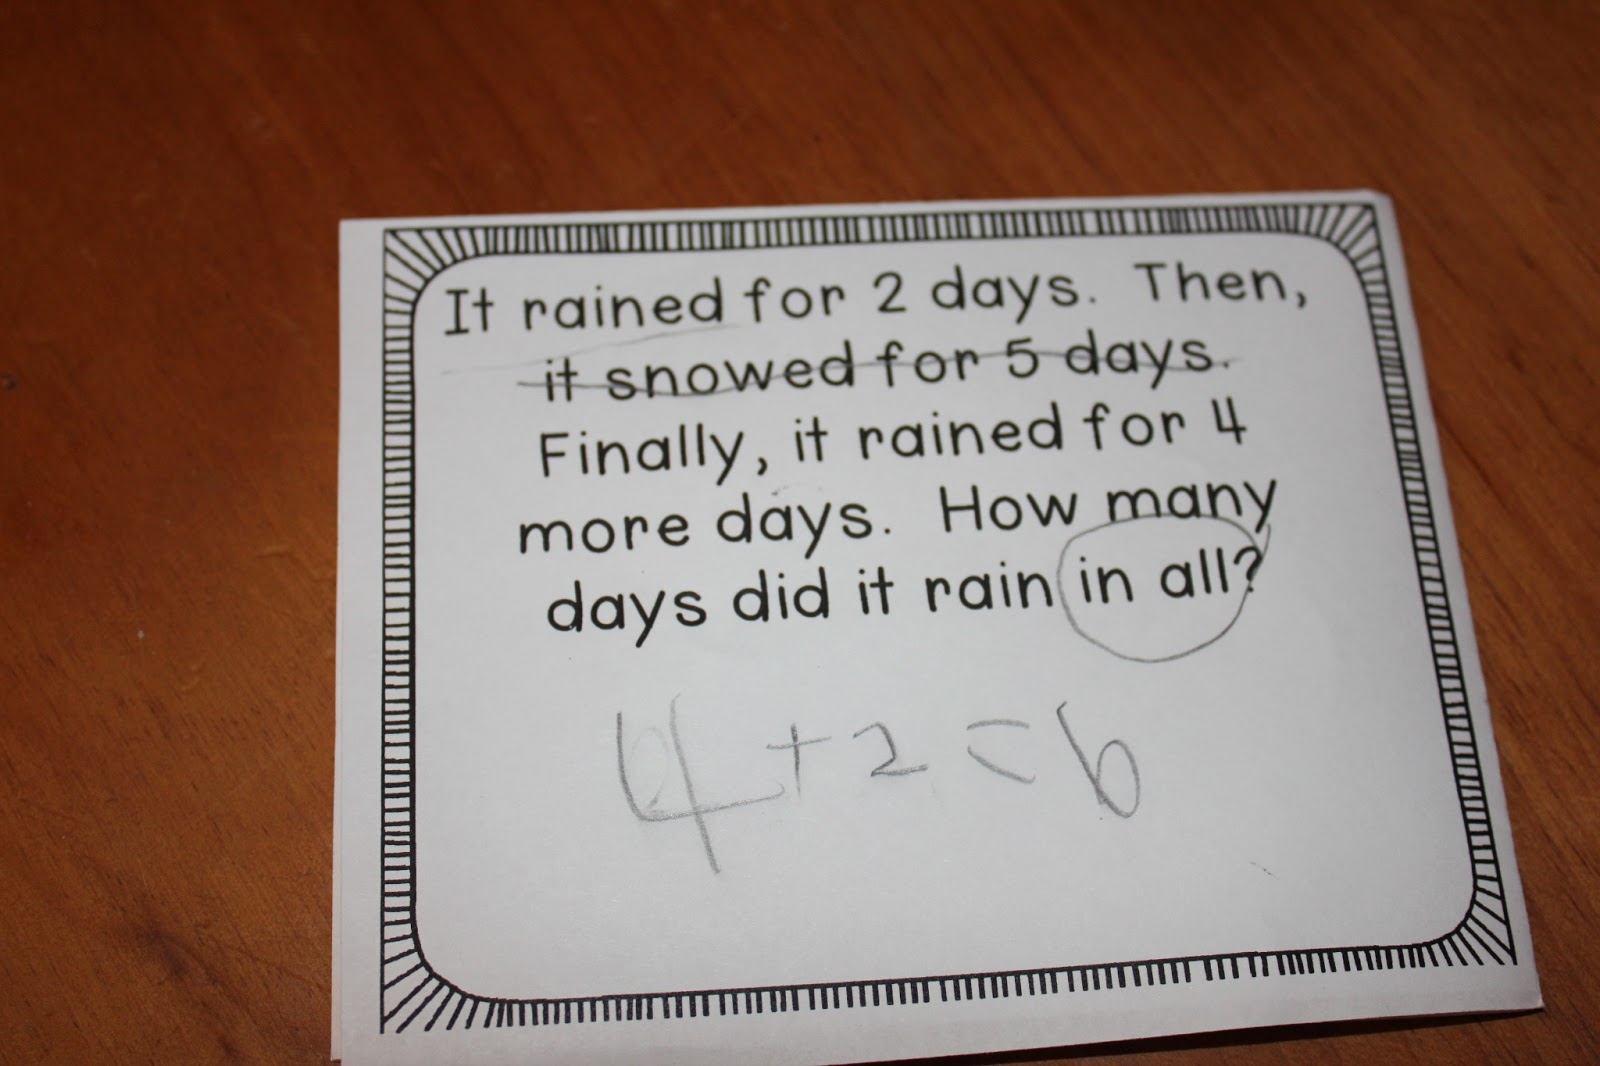 It rained for 2 days. Then,
it snowed for 5 days.
Finally, it rained for 4
more days. How many
days did it rain in all?
4 + 2 = 6